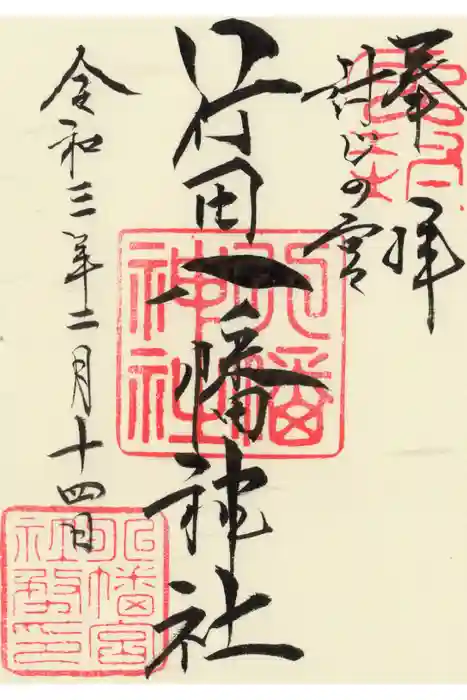 奉拝
封じの宮
行田八幡神社
八幡
神社
令和三年二月十四日
八幡宮
社務印